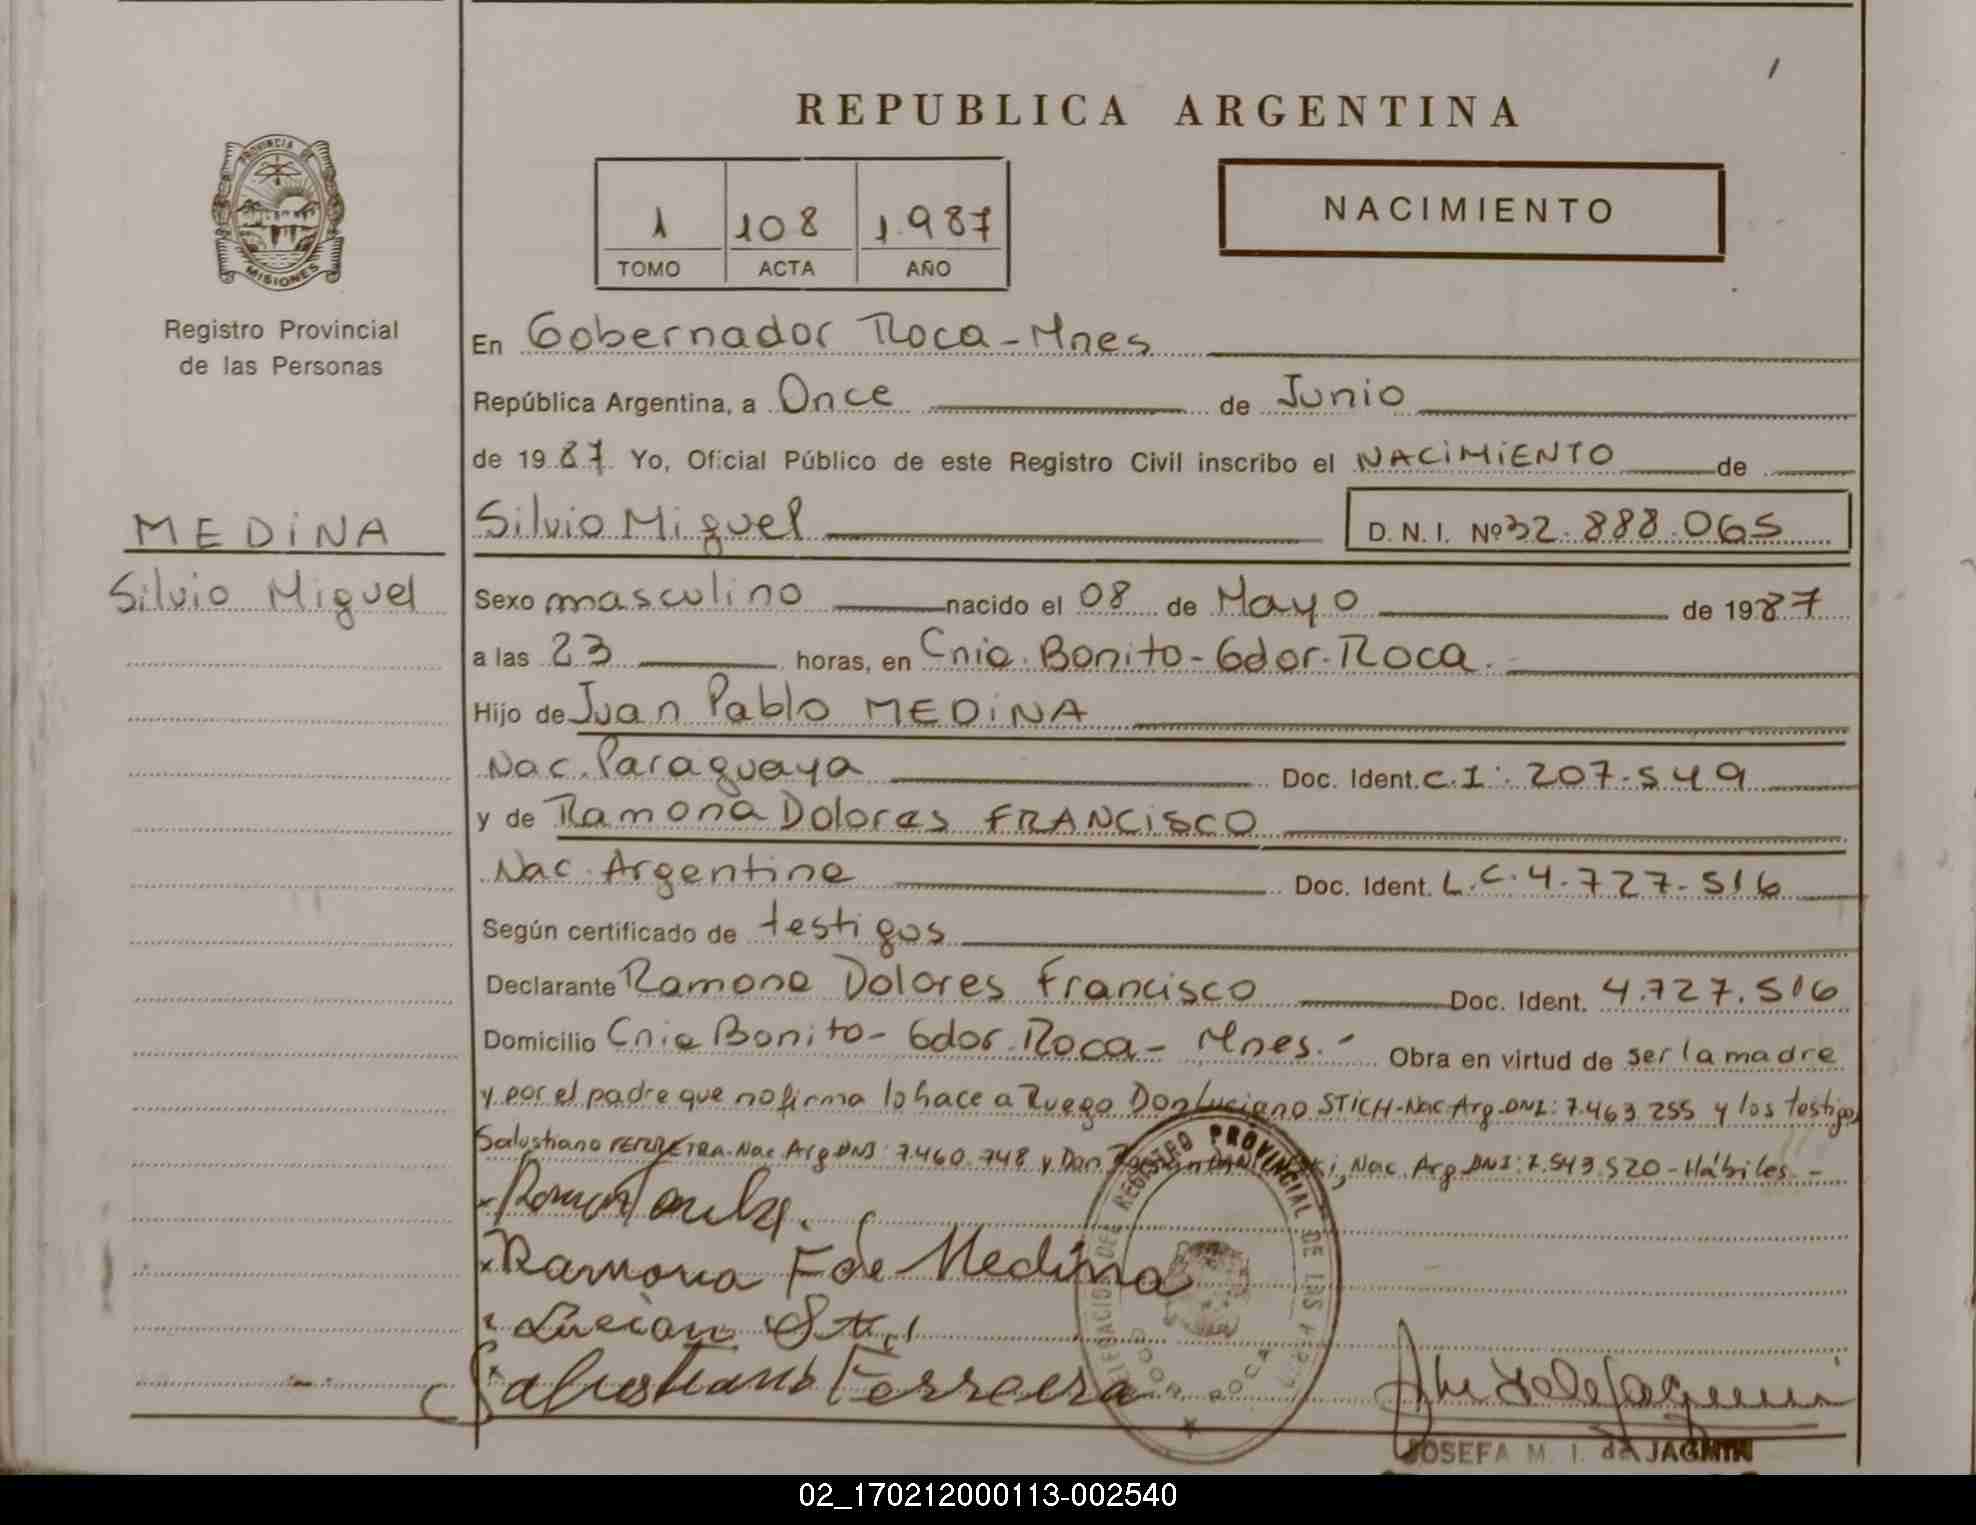 1
REPUBLICA ARGENTINA
PROVINCIA DE
MISIONES
Registro Provincial
de las Personas
1 108 1.987
TOMO ACTA AÑO
NACIMIENTO
En Gobernador Roca - Mnes
República Argentina, a Once de Junio
de 19 87 Yo, Oficial Público de este Registro Civil inscribo el NACIMIENTO de
MEDINA
Silvio Miguel
Silvio Miguel D. N. I. Nº 32.888.065
Sexo masculino nacido el 08 de Mayo de 1987
a las 23 horas, en Cnia. Bonito - Gdor. Roca.
Hijo de Juan Pablo MEDINA
Nac. Paraguaya Doc. Ident. C.I: 207.549
y de Ramona Dolores FRANCISCO
Nac. Argentina Doc. Ident. L.C. 4.727.516
Según certificado de testigos
Declarante Ramona Dolores Francisco Doc. Ident. 4.727.516
Domicilio Cnia Bonito - Gdor. Roca - Mnes. - Obra en virtud de ser la madre
y por el padre que no firma lo hace a Ruego Don Luciano STICH - Nac. Arg. DNI: 7.463.255 y los testigos
Salustiano FERREIRA. Nac Arg DNI: 7.460.748 y Don Nac. Arg DNI: 7.543.520 - Hábiles. -
Ramona F de Medina
Salustiano Ferreira
DELEGACION DEL REGISTRO PROVINCIAL DE LAS
GDOR ROCA
JOSEFA M. I. de JAGMIN
02_170212000113-002540